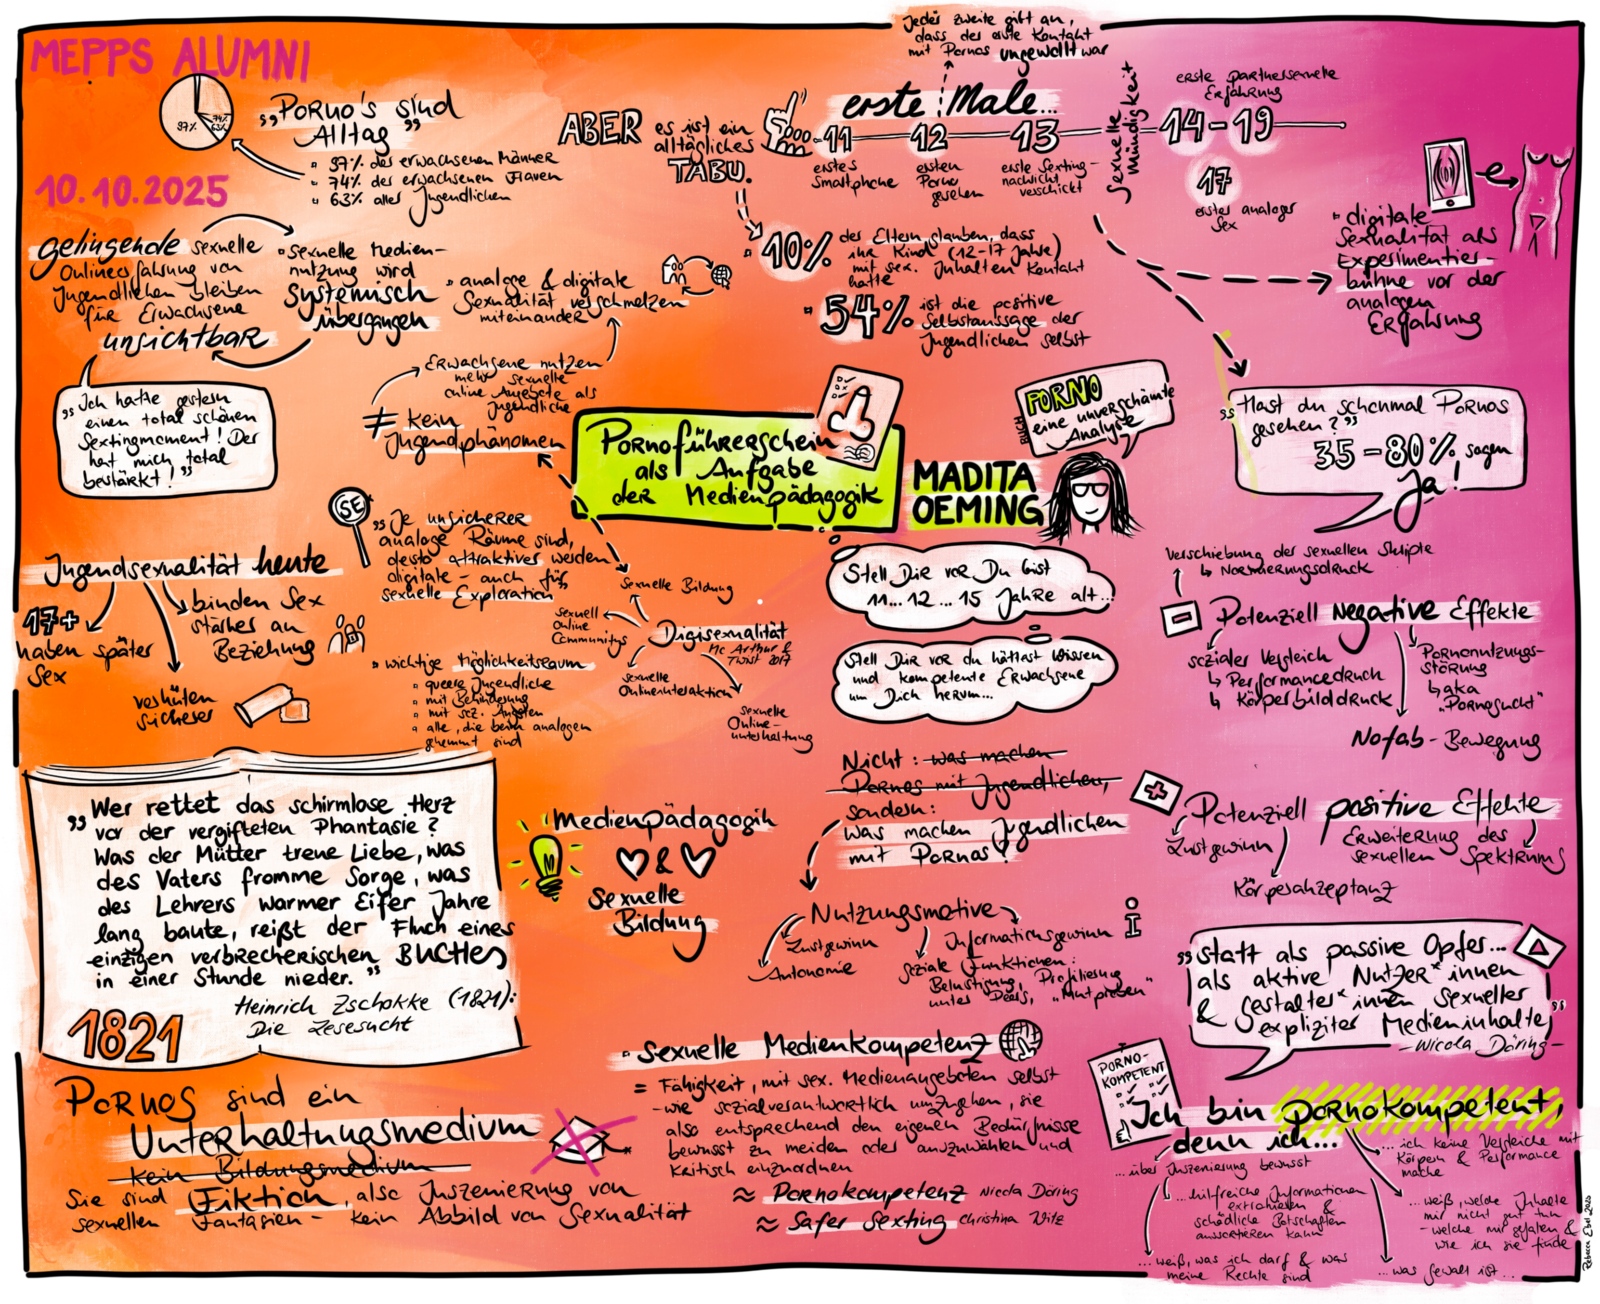 MEPPS ALUMNI
10.10.2025
97%
74%
63%
„Porno's sind
Alltag"
97% der erwachsenen Männer
74% der erwachsenen Frauen
63% aller Jugendlichen
ABER
es ist ein
alltägliches
TABU.
Jeder zweite gibt an,
dass der erste Kontakt
mit Pornos ungewollt war
erste Male...
11
erstes
Smartphone
12
ersten
Porno
gesehen
13
erste Sexting-
nachricht
verschickt
Sexuelle
Mündigkeit
erste partnersexuelle
Erfahrung
14-19
17
erster analoger
Sex
digitale
Sexualität als
Experimentier-
bühne vor der
analogen
Erfahrung
10%
der Eltern glauben, dass
ihr Kind (12-17 Jahre)
mit sex. Inhalten Kontakt
hatte
54%
ist die positive
Selbstaussage der
Jugendlichen selbst
gelingende sexuelle
Onlineerfahrung von
Jugendlichen bleiben
für Erwachsene
unsichtbar
sexuelle Medien-
nutzung wird
systemisch
übergangen
analoge & digitale
Sexualität verschmelzen
miteinander
„Ich hatte gestern
einen total schönen
Sextingmoment! Der
hat mich total
bestärkt!"
Erwachsene nutzen
mehr sexuelle
online Angebote als
Jugendliche
≠ kein
Jugendphänomen
Pornoführerschein
als Aufgabe
der Medienpädagogik
MADITA
OEMING
BUCH
PORNO
eine unverschämte
Analyse
„Hast du schonmal Pornos
gesehen?"
35-80% sagen
Ja!
SE
„Je unsicherer
analoge Räume sind,
desto attraktiver werden
digitale – auch für
sexuelle Exploration"
Jugendsexualität heute
17+
haben später
Sex
binden Sex
stärker an
Beziehung
verhüten
sicherer
wichtige Möglichkeitsraum
queere Jugendliche
mit Behinderung
mit soz. Ängsten
alle, die beim analogen
gehemmt sind
Sexuelle Bildung
sexuell
Online
Communitys
Digisexualität
Mc Arthur &
Twist 2017
sexuelle
Onlineinteraktion
sexuelle
Online-
unterhaltung
Stell Dir vor Du bist
11... 12 ... 15 Jahre alt...
Stell Dir vor du hättest Wissen
und kompetente Erwachsene
um Dich herum...
Verschiebung der sexuellen Skripte
↳ Normierungsdruck
Potenziell negative Effekte
sozialer Vergleich
↳ Performancedruck
↳ Körperbilddruck
Pornonutzungs-
störung
↳ aka
„Pornosucht"
Nofab-Bewegung
Nicht: was machen
Pornos mit Jugendlichen,
sondern:
was machen Jugendlichen
mit Pornos?
Potenziell positive Effekte
Lustgewinn
Erweiterung des
sexuellen Spektrums
Körperakzeptanz
„Wer rettet das schirmlose Herz
vor der vergifteten Phantasie?
Was der Mütter treue Liebe, was
des Vaters fromme Sorge, was
des Lehrers warmer Eifer Jahre
lang baute, reißt der Fluch eines
einzigen verbrecherischen BUCHES
in einer Stunde nieder."
Heinrich Zschokke (1821):
Die Lesesucht
1821
M
Medienpädagogik
&
Sexuelle
Bildung
Nutzungsmotive
Lustgewinn
Autonomie
Informationsgewinn
i
soziale Funktionen:
Belustigung, Profilierung
unter Peers, „Mutproben"
„Statt als passive Opfer...
als aktive Nutzer*innen
& Gestalter*innen sexueller
expliziter Medieninhalte"
-Nicola Döring-
Pornos sind ein
Unterhaltungsmedium
kein Bildungsmedium
Sie sind Fiktion, also Inszenierung von
sexuellen Fantasien – kein Abbild von Sexualität
Sexuelle Medienkompetenz
= Fähigkeit, mit sex. Medienangeboten selbst
-wie sozialverantwortlich umzugehen, sie
also entsprechend den eigenen Bedürfnisse
bewusst zu meiden oder auszuwählen und
kritisch einzuordnen
≈ Pornokompetenz Nicola Döring
≈ Safer Sexting Christina Witz
PORNO-
KOMPETENT
Ich bin pornokompetent,
denn ich...
...über Inszenierung bewusst
...hilfreiche Informationen
extrahieren &
schädliche Botschaften
aussortieren kann
...weiß, was ich darf & was
meine Rechte sind
...ich keine Vergleiche mit
Körpern & Performance
mache
...weiß, welche Inhalte
mir nicht gut tun
-welche mir gefallen &
wie ich sie finde
...was Gewalt ist...
Rebecca Ebel 2025